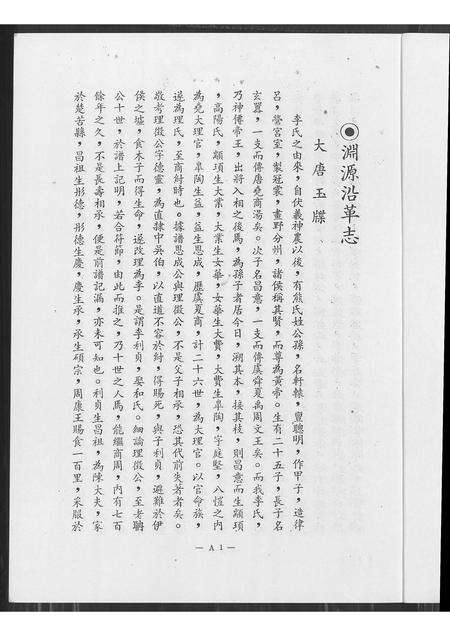 ◉淵源沿革志
大唐玉牒
李氏之由來，自伏羲神農以後，有熊氏姓公孫，名軒轅，亶聰明，作甲子，造律
呂，營宮室，製冠裳，畫野分州，諸侯稱其賢，而尊為黃帝。生有二十五子，長子名
玄囂，一支而傳唐堯商湯矣。次子名昌意，一支而傳虞舜夏禹周文王矣。而我李氏，
乃神傳帝王，出將入相之後焉，為孫子者居今日，溯其本，接其枝，則昌意而生顓頊
，高陽氏，顓頊生大業，大業生女華，女華生大費，大費生皐陶，字庭堅，八愷之內
為堯大理官，皐陶生益，益生恩成，歷虞夏商，計二十六世，為大理官。以官命族，
遂為理氏，至商紂時也。據譜恩成公與理徵公，不是父子相承，恐其代前失著者矣。
敬考理徵公字德靈，為直隸中吳伯，以直道不容於紂，得賜死，與子利貞，避難於伊
侯之墟，食木子而得生命，遂改理為李。是謂李利貞，娶和氏。細論理徵公，至老聃
公十世，於譜上記明，若合符節，由此而推之，乃十世之人焉，能繼商周，內有七百
餘年之久，不是長壽相承，便是前譜記漏，亦未可知也。利貞生昌祖，為陳大夫，家
於楚苦縣，昌祖生彤德，彤德生慶，慶生承，承生碩宗，周康王賜食一百里，采服於
— A 1 —